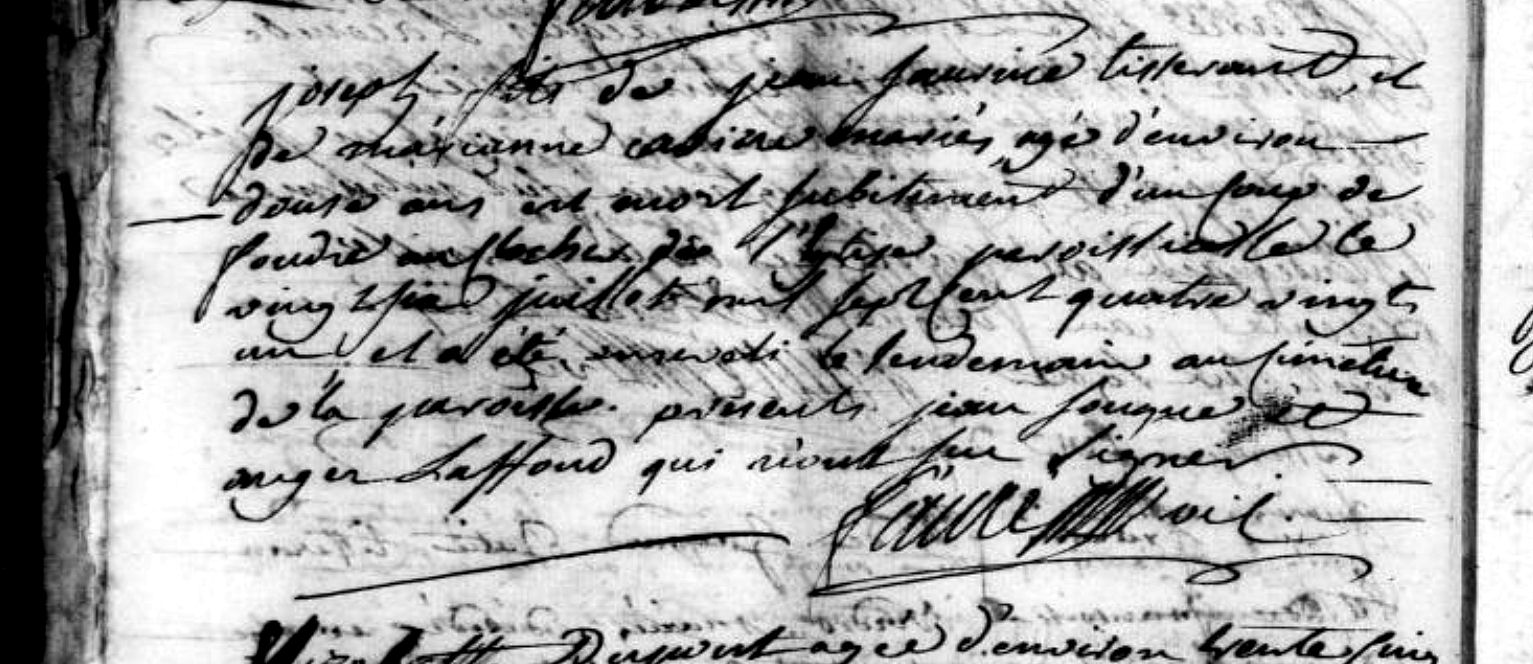 joseph fils de jean faurine tisserant, et
de marianne caviere mariés agé d'environ
douse ans est mort subitement d'un coup de
foudre au clocher de l'Eglise paroissialle le
vingt six juillet mil sept cent quatre vingts
un et a été enseveli le lendemain au cimetiere
de la paroisse. présents jean fouque et
anger Laffond qui n'ont sçu signer
faure vic.
Dupont agée d'environ trente cinq